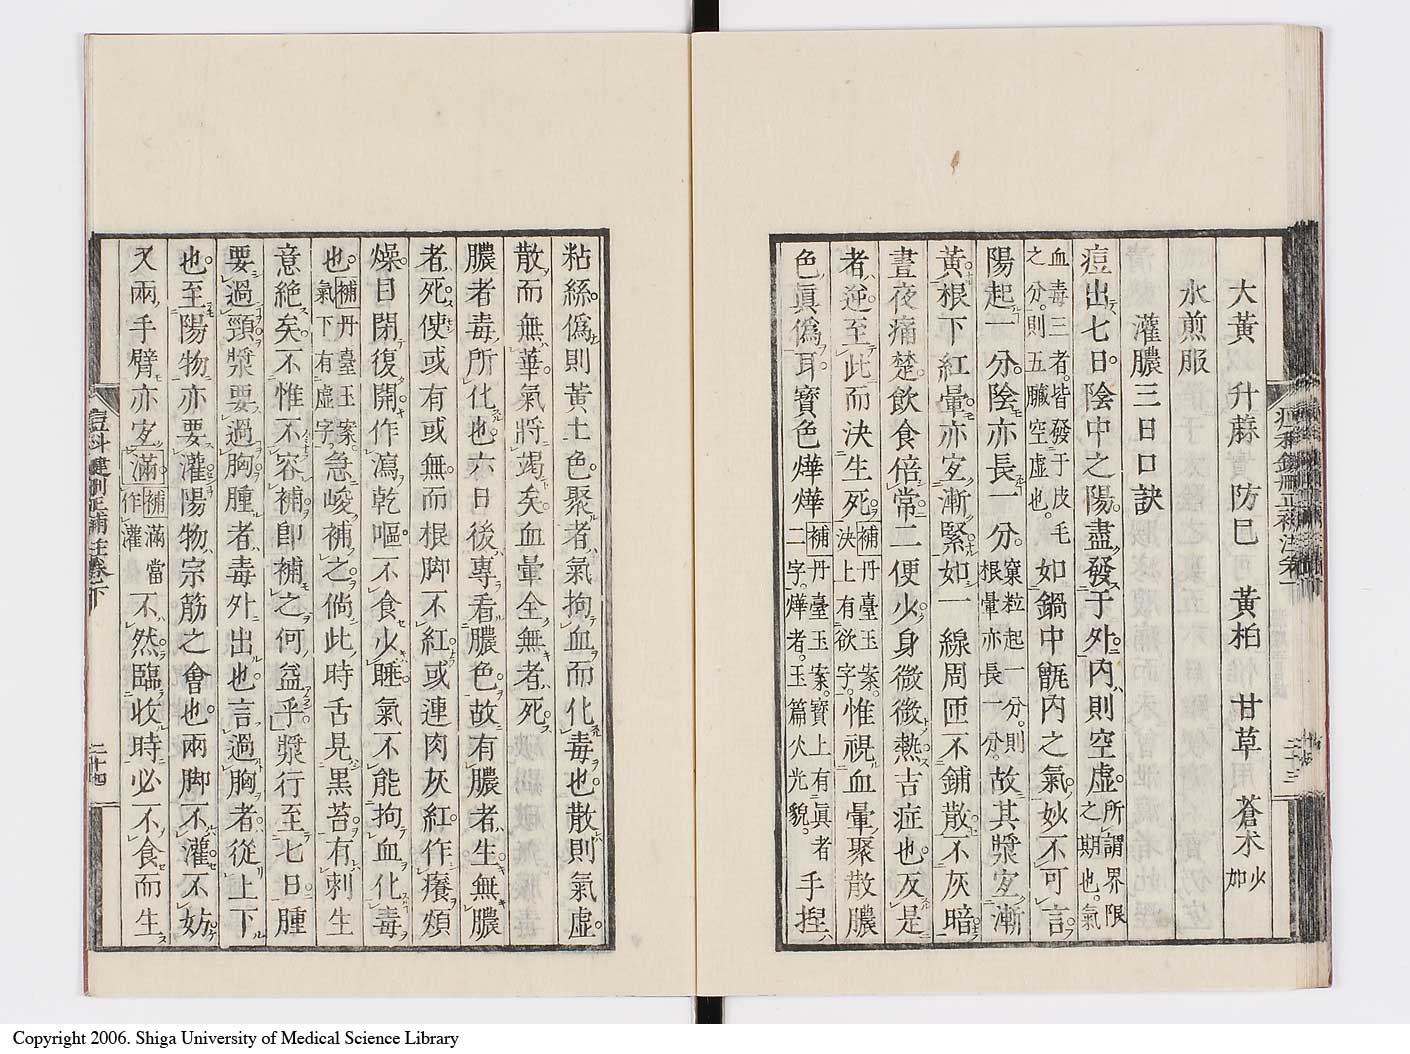 大黃 升蔴 防巳 黃柏 甘草 蒼朮炒
水煎服
灌膿三日口訣
痘出七日陰中之陽盡發于外內則空虛所謂界限之期也氣
血毒三者皆發于皮毛之分則五臟空虛也如鍋中甑內之氣妙不可言
陽起一分陰亦長一分窠粒起一分則根暈亦長一分故其漿㝎漸
黃根下紅暈亦㝎漸緊如一線周匝不鋪散不灰暗
晝夜痛楚飲食倍常二便少身微微熱古症也反是
者逆至此而決生死補丹臺玉案決上有欲字惟視血暈聚散膿
色眞僞耳寳色燁燁補丹臺玉案寳上有眞者二字燁者玉篇火光貌手揑
粘絲僞則黃土色聚者氣拘血而化毒也散則氣虛
散而無華氣將竭矣血暈全無者死
膿者毒所化也六日後專看膿色故有膿者生無膿
者死使或有或無而根脚不紅或連肉灰紅作癢煩
燥日閉復開作瀉乾嘔不食少睡氣不能拘血化毒
也補丹臺玉案氣下有虛字急峻補之倘此時舌見黑苔有刺生
意絕矣不惟不容補卽補之何益乎漿行至七日腫
要過頸漿要過胸腫者毒外出也言過胸者從上下
也至陽物亦要灌陽物宗筋之會也兩脚不灌不妨
又兩手臂亦㝎滿補滿當作灌不然臨收時必不食而生
二十三
二十四